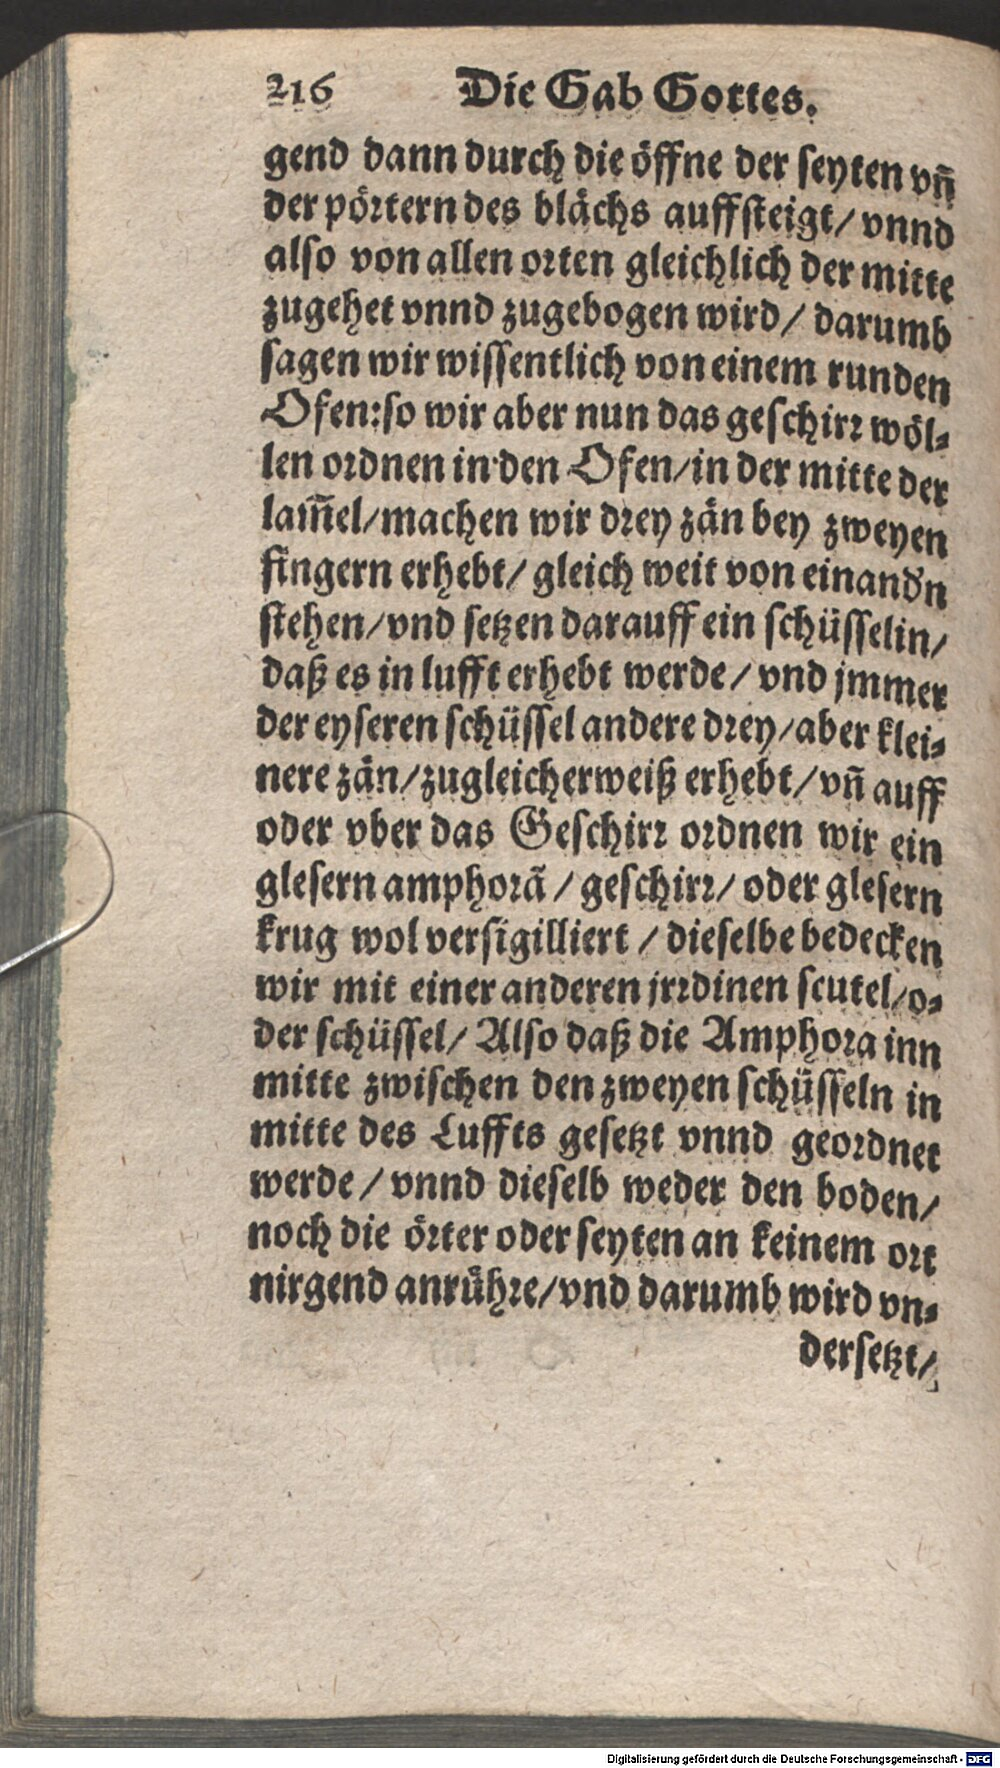 216 Die Gab Gottes.
gend dann durch die öffne der ſeyten vñ
der pörtern des blächs auffſteigt/ vnnd
alſo von allen orten gleichlich der mitte
zugehet vnnd zugebogen wird/ darumb
ſagen wir wiſſentlich von einem runden
Ofen:ſo wir aber nun das geſchirr wöl⸗
len ordnen in den Ofen/in der mitte der
lam̃el/machen wir drey zän bey zweyen
fingern erhebt/ gleich weit von einandn
ſtehen/vnd ſetzen darauff ein ſchüſſelin/
daß es in lufft erhebt werde/ vnd jmmer
der eyſeren ſchüſſel andere drey/aber klei⸗
nere zän/zugleicherweiß erhebt/vñ auff
oder vber das Geſchirr ordnen wir ein
gleſern amphorã / geſchirr/ oder gleſern
krug wol verſigilliert / dieſelbe bedecken
wir mit einer anderen jrrdinen ſcutel/o⸗
der ſchüſſel/ Alſo daß die Amphora inn
mitte zwiſchen den zweyen ſchüſſeln in
mitte des Luffts geſetzt vnnd geordnet
werde / vnnd dieſelb weder den boden/
noch die örter oder ſeyten an keinem ort
nirgend anrühre/vnd darumb wird vn⸗
derſetzt/
Digitalisierung gefördert durch die Deutsche Forschungsgemeinschaft - DFG